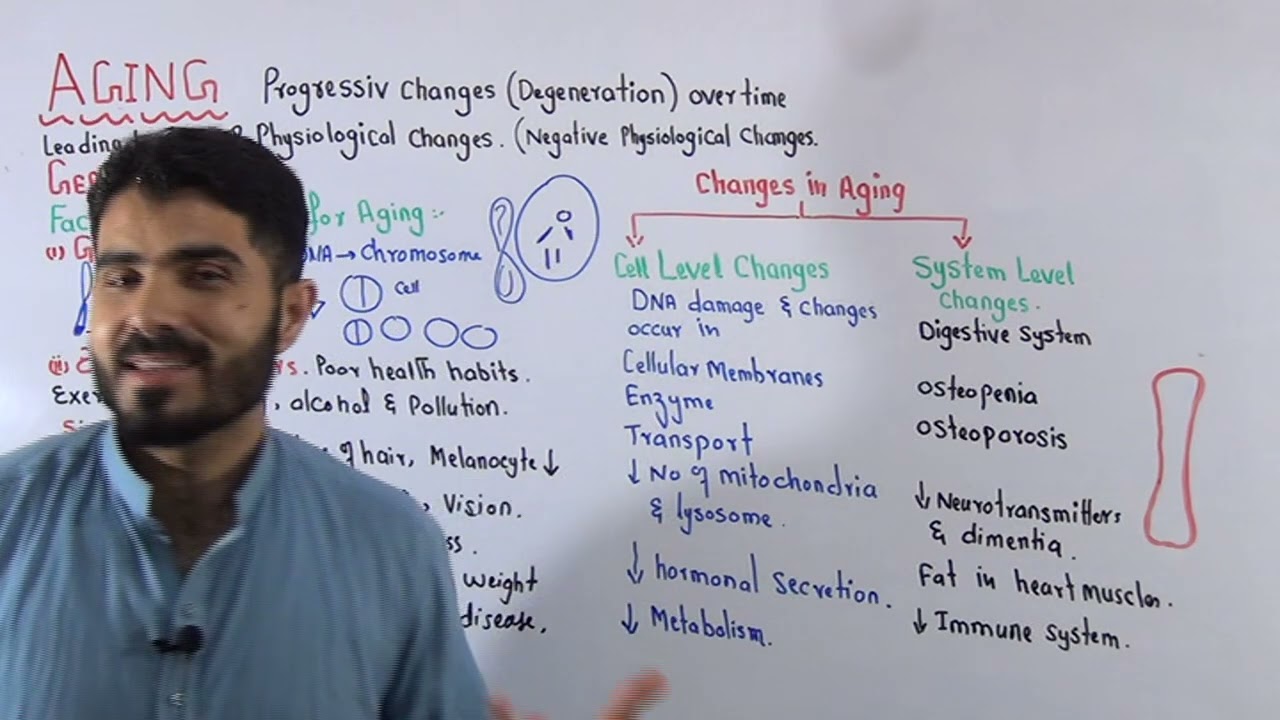 AGING Progressiv Changes (Degeneration) over time
Leading Physiological Changes. (Negative Physiological Changes.
for Aging :-
(i)
DNA → Chromosome
Cell
(ii) Poor health habits.
alcohol & Pollution.
of hair, Melanocyte ↓
Vision.
Weight
disease.
Changes in Aging
Cell Level Changes
DNA damage & changes
occur in
Cellular Membranes
Enzyme
Transport
↓ No of mitochondria
& lysosome.
↓ hormonal secretion.
↓ Metabolism.
System Level
Changes.
Digestive System
osteopenia
osteoporosis
↓ Neurotransmitters
& dimentia.
Fat in heart muscles.
↓ Immune system.